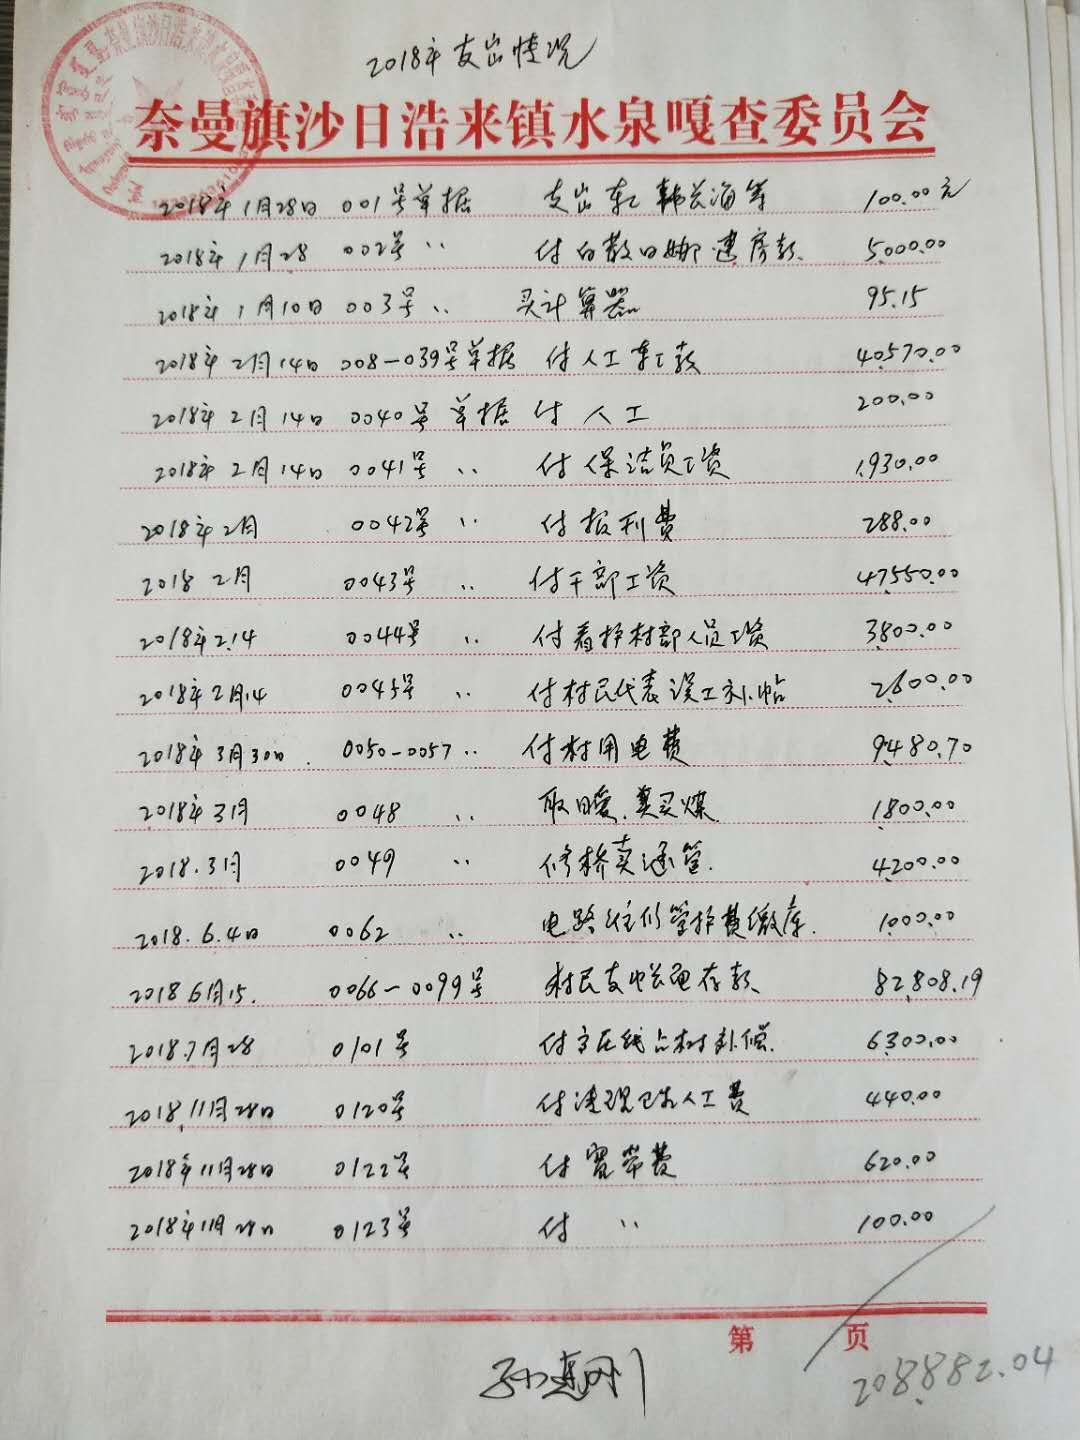 2018年支出情况
奈曼旗沙日浩来镇水泉嘎查委员会
2018年1月28日 001号单据 支出车工韩长海等 100.00元
2018年1月28 002号 〃 付白散日娜建房款. 5000.00
2018年1月10日 003号 〃 买计算器 95.15
2018年2月14日 008—039号单据 付人工车工款 40570.00
2018年2月14日 0040号单据 付人工 200.00
2018年2月14日 0041号 〃 付保洁员工资 1930.00
2018年2月 0042号 〃 付报刊费 288.00
2018 2月 0043号 〃 付干部工资 47550.00
2018年2.14 0044号 〃 付看护村部人员工资 3800.00
2018年2月14 0045号 〃 付村民代表误工补帖 2600.00
2018年3月30日. 0050-0057 〃 付村用电费 9480.70
2018年3月 0048 〃 取暖. 买煤 1800.00
2018.3月 0049 〃 修桥卖涵管. 4200.00
2018.6.4日 0062 〃 电路维修管护费缴库. 1000.00
2018 6月15. 0066—0099号 村民支 存款 82808.19
2018.7月28 0101号 付 占树补偿. 6300.00
2018.11月28日 0120号 付 人工费 440.00
2018年11月28日 0122号 付宽带费 620.00
2018年11月28日 0123号 付 〃 100.00
第 页
208882.04